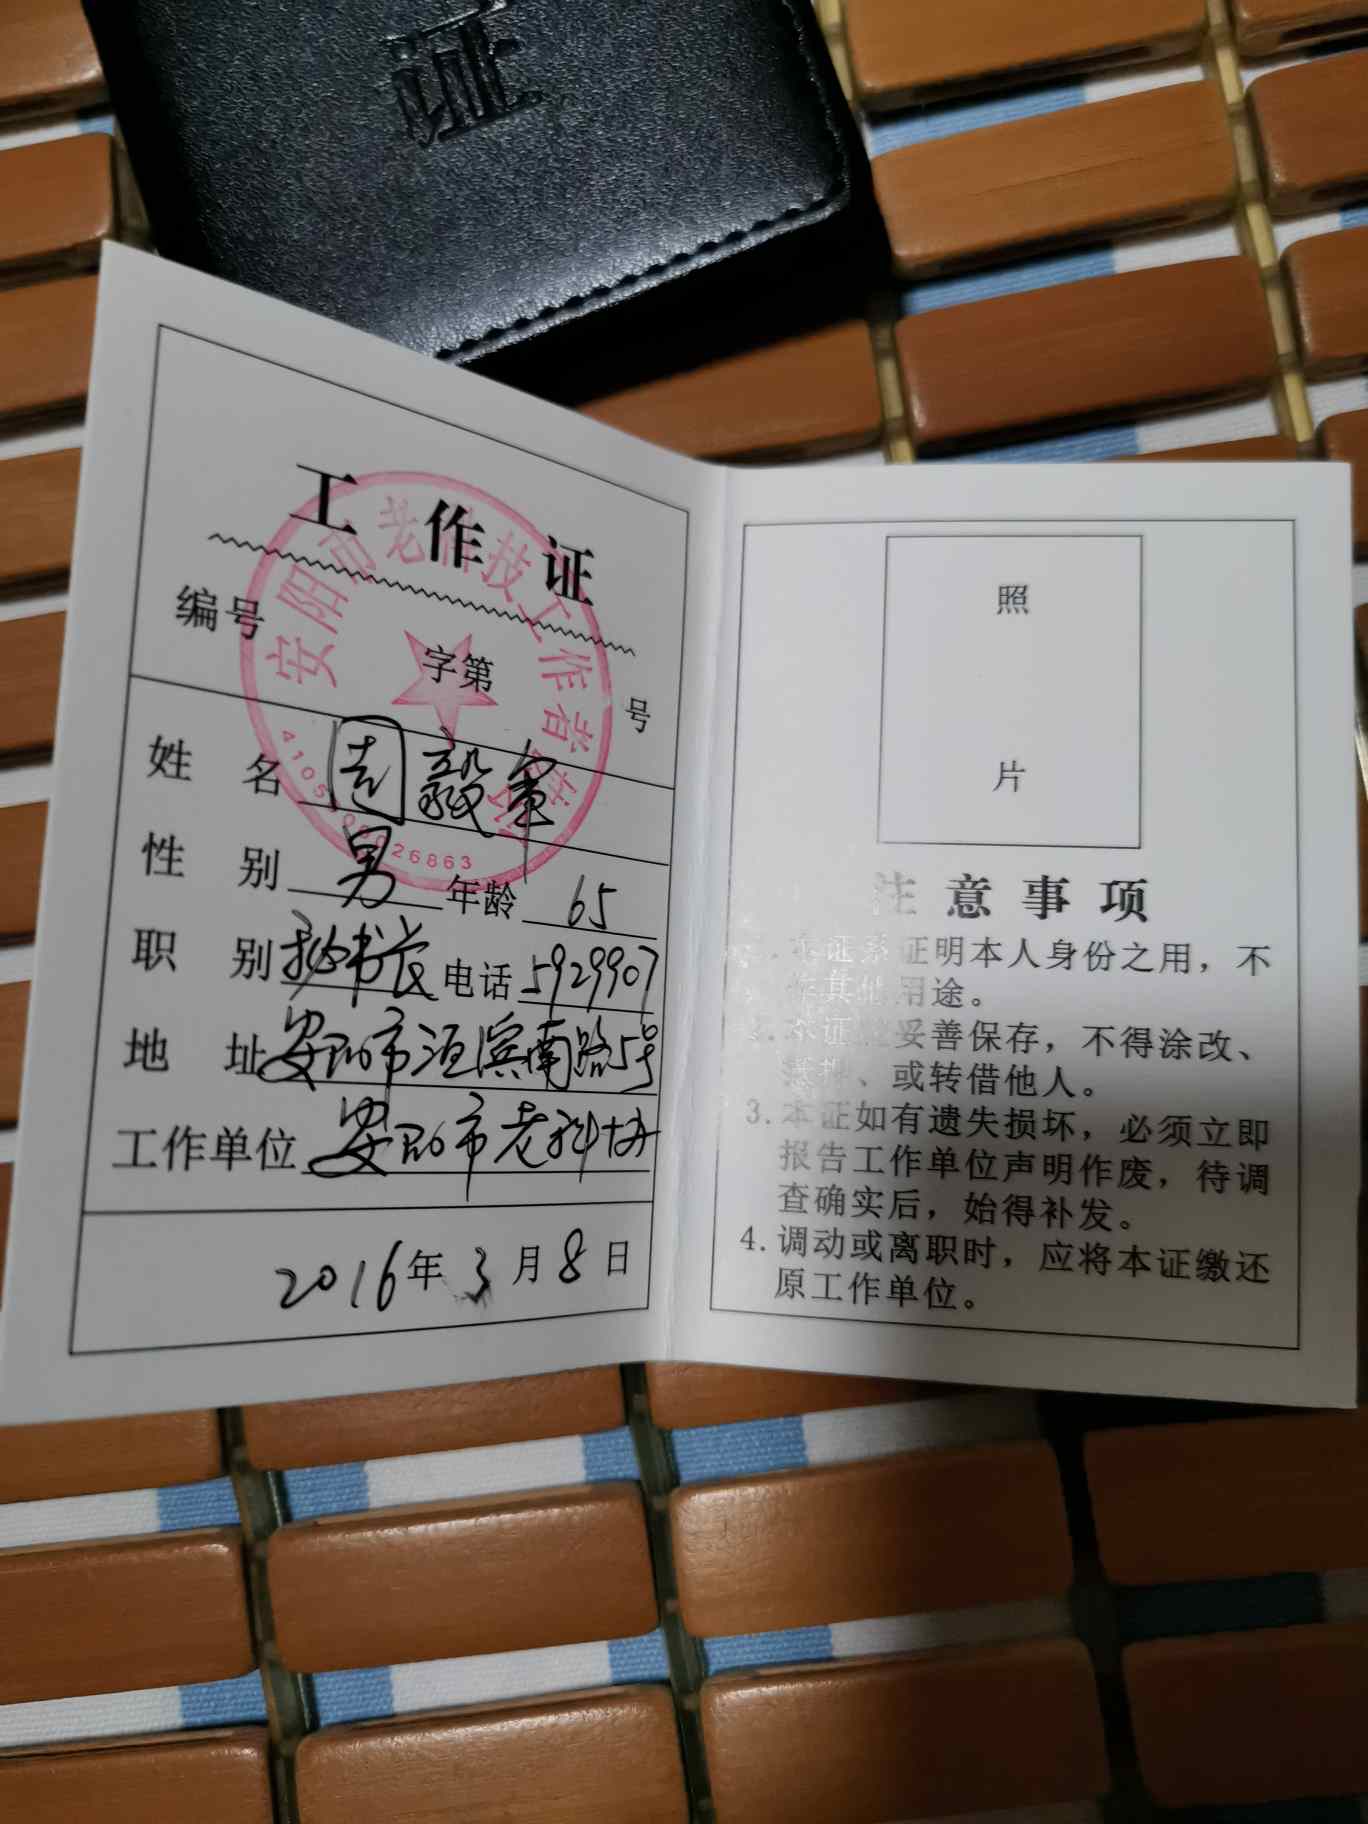 证
工作证
编号 字第 号
姓名 毅军
性别 男 年龄 65
职别 秘书长 电话 5929907
地址 安阳市洹滨南路5号
工作单位 安阳市老科协
2016年3月8日
安阳市老科技工作者协会
照
片
注意事项
1.本证系证明本人身份之用，不
作其他用途。
2.本证应妥善保存，不得涂改、
抵押、或转借他人。
3.本证如有遗失损坏，必须立即
报告工作单位声明作废，待调
查确实后，始得补发。
4.调动或离职时，应将本证缴还
原工作单位。